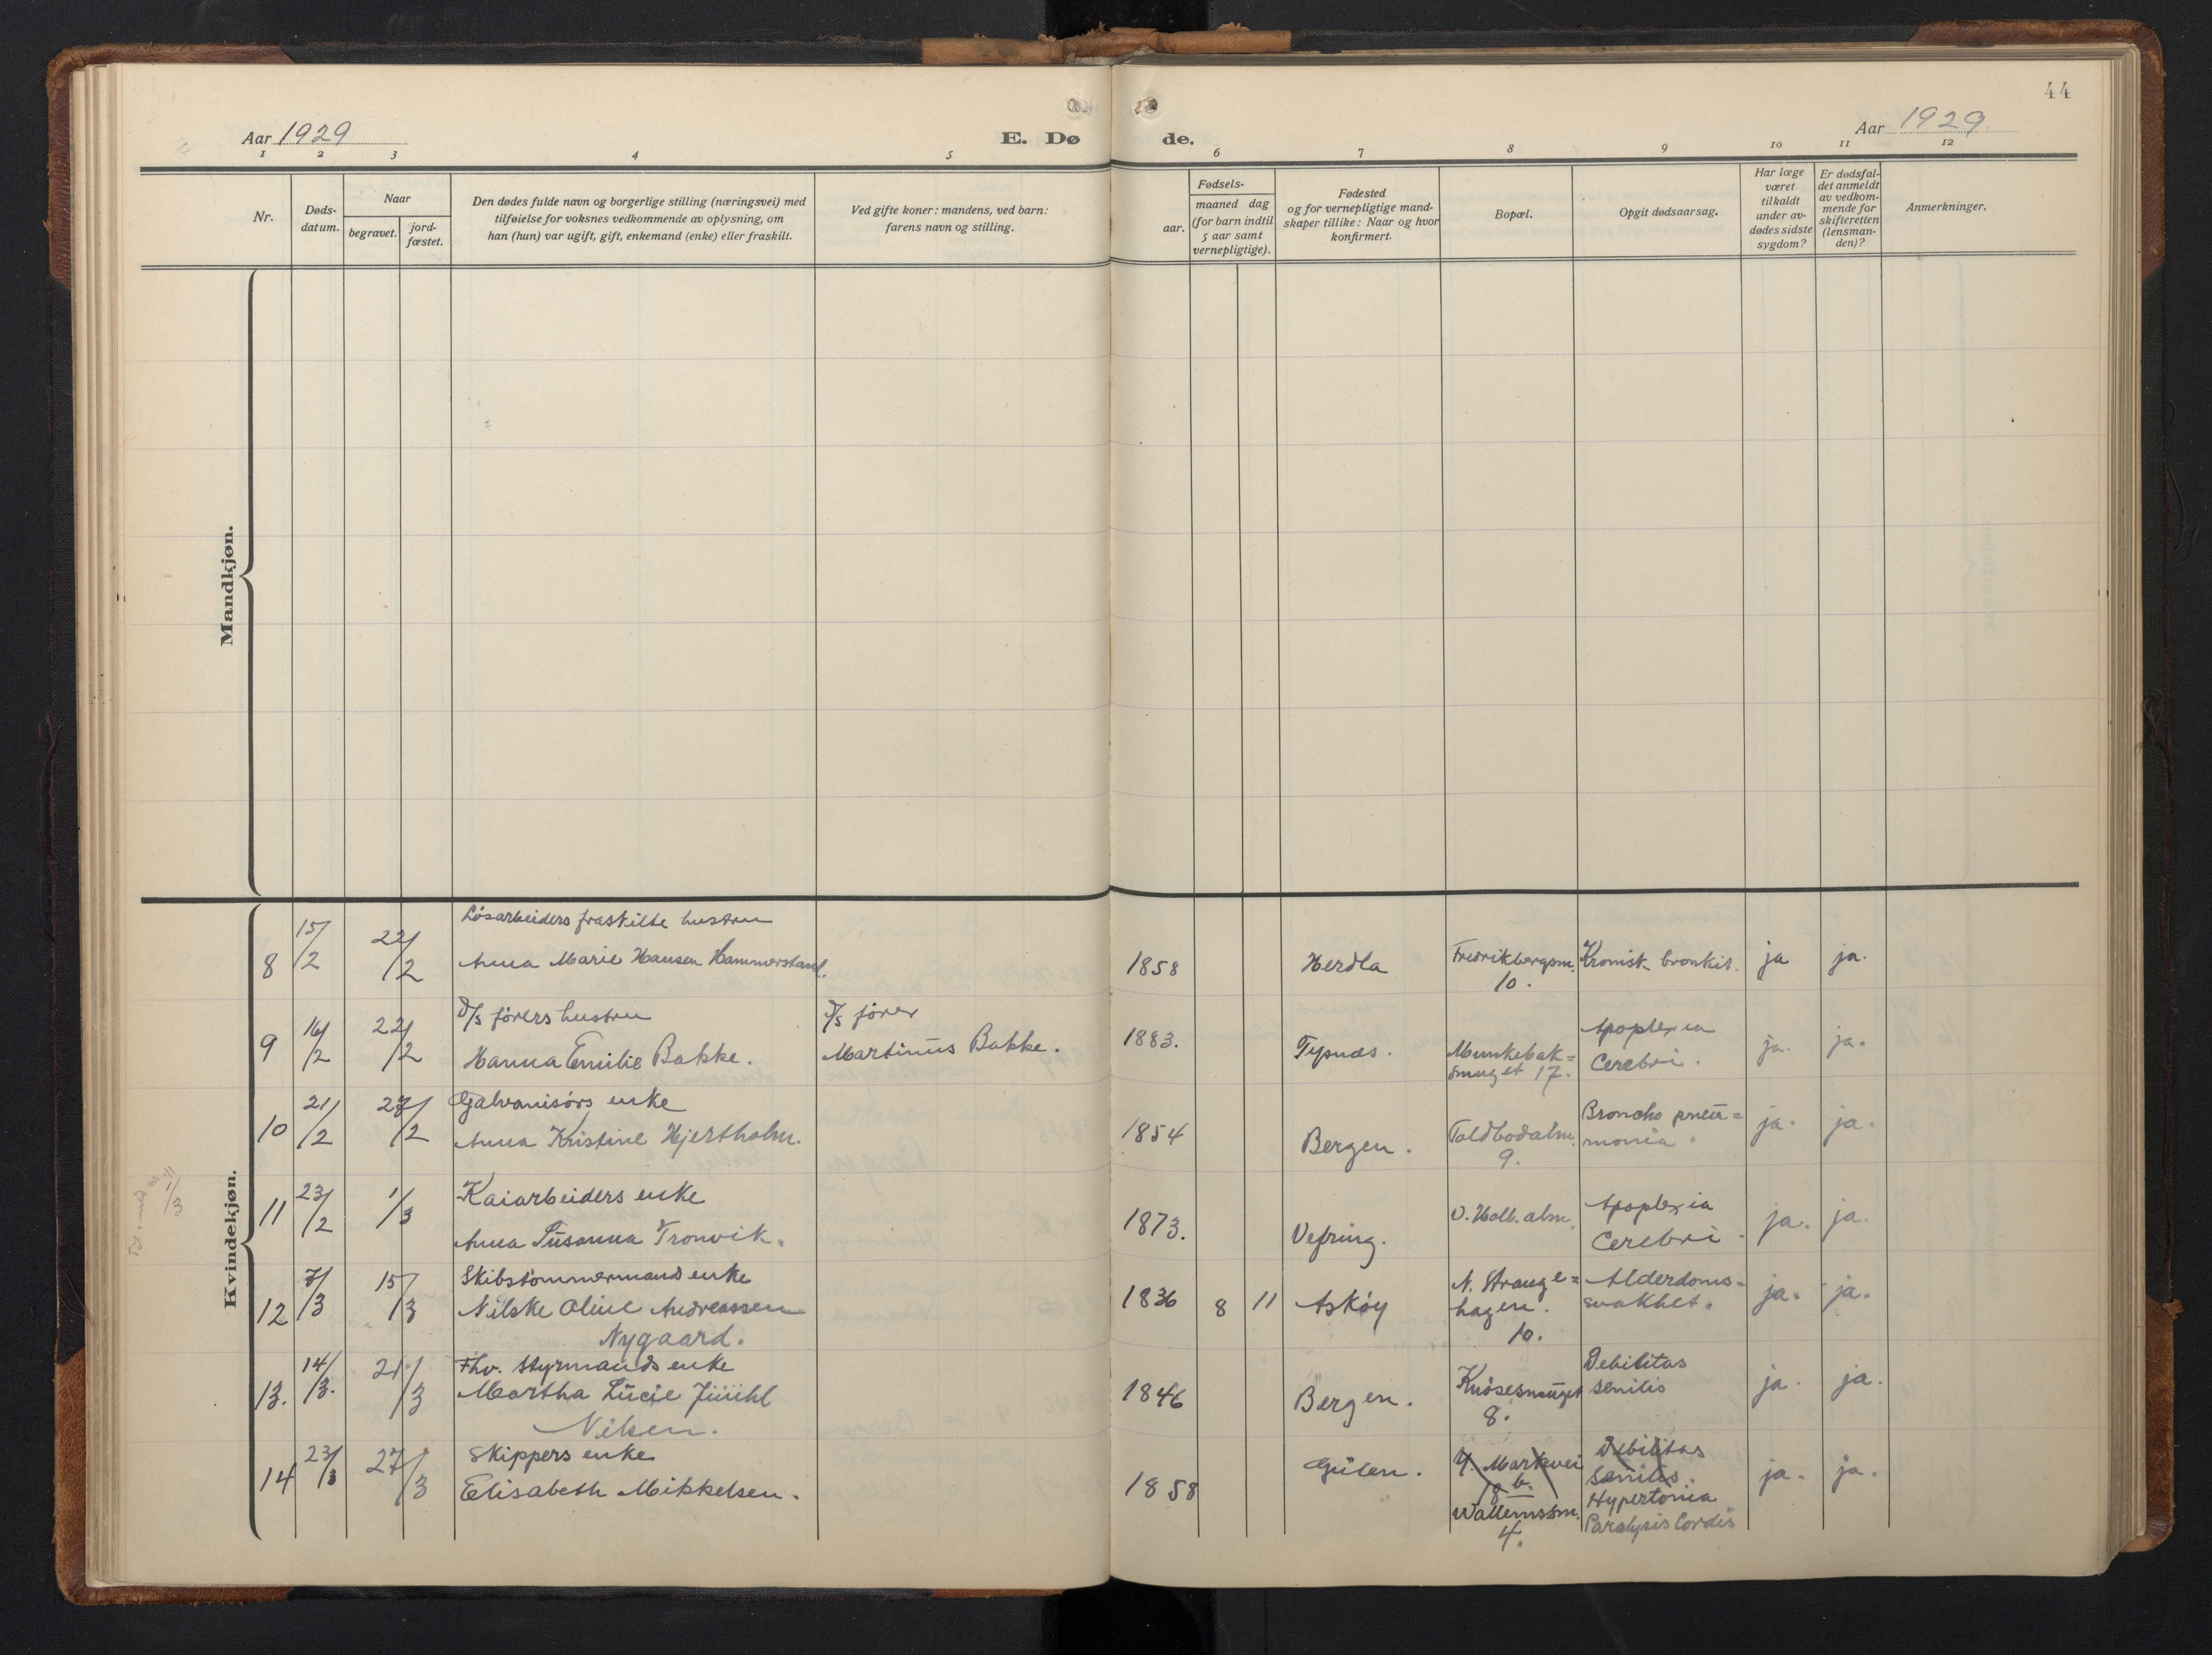 44
Aar 1929
E. Dø
de.
Aar 1929
1 2 3 4 5 6 7 8 9 10 11 12
Nr.
Døds-
datum.
Naar
begravet.
jord-
fæstet.
Den dødes fulde navn og borgerlige stilling (næringsvei) med
tilføielse for voksnes vedkommende av oplysning, om
han (hun) var ugift, gift, enkemand (enke) eller fraskilt.
Ved gifte koner: mandens, ved barn:
farens navn og stilling.
Fødsels-
aar.
maaned dag
(for barn indtil
5 aar samt
vernepligtige).
Fødested
og for vernepligtige mand-
skaper tillike: Naar og hvor
konfirmert.
Bopæl.
Opgit dødsaarsag.
Har læge
været
tilkaldt
under av-
dødes sidste
sygdom?
Er dødsfal-
det anmeldt
av vedkom-
mende for
skifteretten
(lensman-
den)?
Anmerkninger.
Mandkjøn.
Kvindekjøn.
Løsarbeiders fraskilte hustru
8 15/2 22/2 Anna Marie Hansen Hammersland. 1858 Herdla Fredrikbergsm. Kronisk bronkit. ja ja.
10.
D/s førers hustru D/s fører
9 16/2 22/2 Hanna Emilie Bakke. Martinus Bakke. 1883. Tysnæs. Munkebak= Apoplexia ja. ja.
smuget 17. Cerebri.
Galvanisørs enke
10 21/2 27/2 Anna Kristine Hjertholm. 1854 Bergen. Toldbodalm. Broncho pneu= ja. ja.
9. monia.
Kaiarbeiders enke
11 23/2 1/3 Anna Susanna Tronvik. 1873. Vefring. V. Holb. alm. Apoplexia ja. ja.
Cerebri.
1/3
Skibstømmermands enke
12 7/3 15/3 Nilske Oline Andreassen 1836 8 11 Askøy N. Strange= Alderdoms= ja. ja.
Nygaard. hagen. svakhet.
10.
Fhv. styrmands enke
13. 14/3. 21/3 Martha Lucie Jüühl 1846 Bergen. Knøsesmuget Debilitas ja. ja.
Nilsen. 8. senilis
Skippers enke
14 23/3 27/3 Elisabeth Mikkelsen. 1858 Gulen. Y. Markvei Debilitas ja. ja.
18 b. senilis.
Wallemssm. Hypertonia
4. Paralysis Cordis